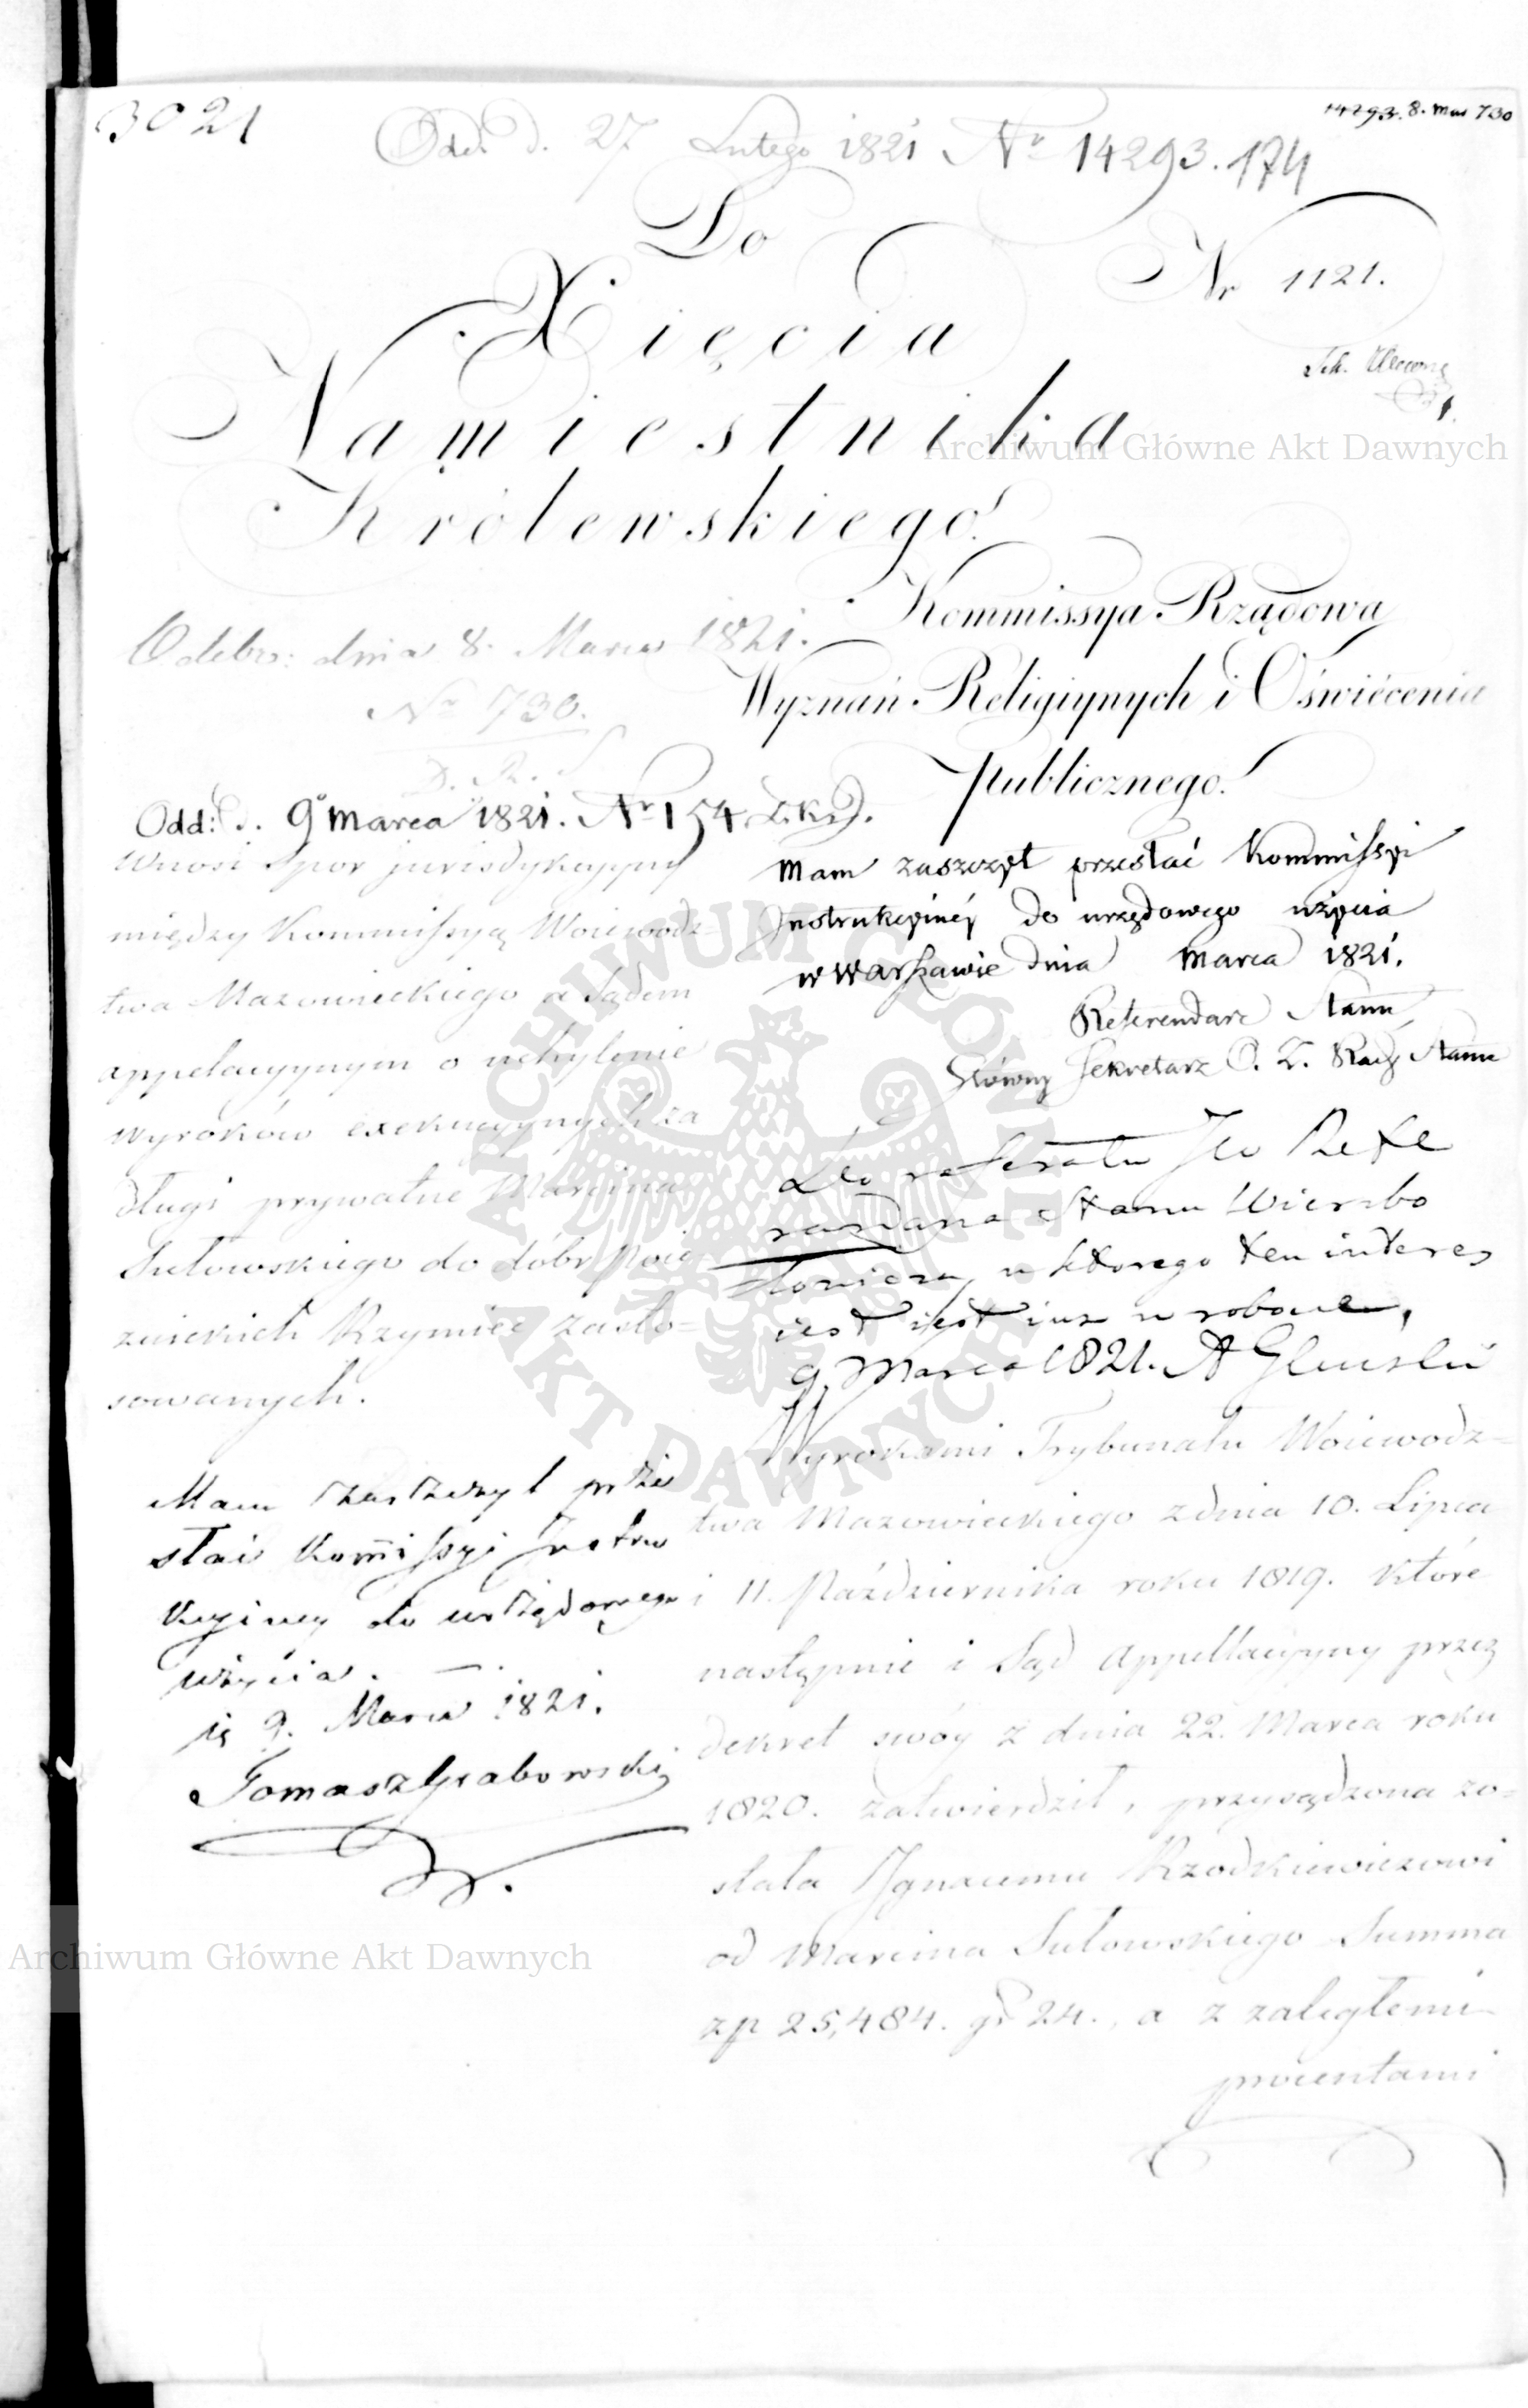 3021
14293. 8. Mar 730
Odd. d. 27 Lutego 1821 Nr 14293. 174
Do
Nr 1121.
Xięcia
Namiestnika
Królewskiego.
Archiwum Główne Akt Dawnych
Kommissya Rządowa
Wyznań Religiynych i Oświécenia
Publicznego.
Odebr: dnia 8. Marca 1821.
Nr 730.
Odd: d. 9 Marca 1821. Nr 154
Wnosi Spor jurisdykcyjny
między Kommissyą Woiewódz=
twa Mazowieckiego a Sądem
appelacyynym o uchylenie
wyroków exekucyynych za
długi prywatne Marcina
Sułowskiego do dóbr
Rzymiec zasto=
sowanych.
Mam zaszczyt przesłać Kommissyi
Instrukcyinéy do urzędowego użycia
w Warszawie dnia Marca 1821.
Referendarz Stanu
Główny Sekretarz Rady Stanu
Do referatu JW Refe
rendarza Stanu Wierzbo
łowicza, u którego ten interes
iest iuz w robocie,
9 Marca 1821. A
Mam zaszczyt prze
słać Kommissyi Instru
kcyiney do urzędowego
użycia.
9. Marca 1821.
Tomasz Grabowski
Wyrokami Trybunału Woiewodz=
twa Mazowieckiego z dnia 10. Lipca
i 11. Października roku 1819. które
następnie i Sąd Appellacyyny przez
dekret swóy z dnia 22. Marca roku
1820. zatwierdził, przysądzona zo=
stała Ignacemu Rzodkiewiczowi
od Marcina Sułowskiego Summa
zp 25,484. gr 24., a z zaległemi
procentami
Archiwum Główne Akt Dawnych
ARCHIWUM GŁÓWNE AKT DAWNYCH